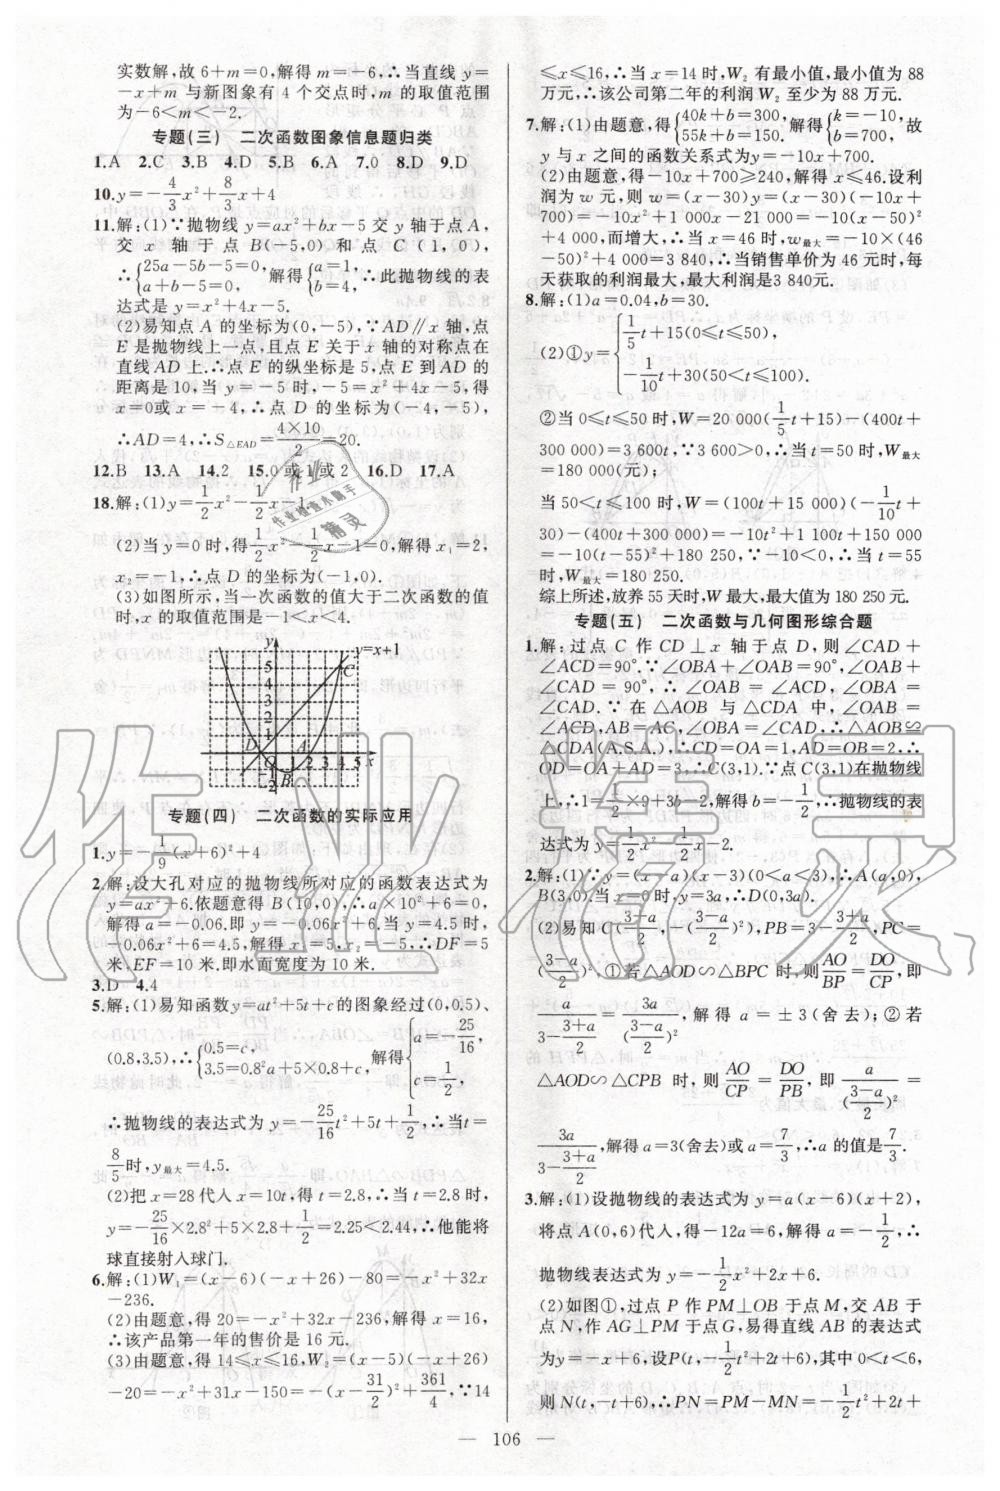 实数解,故6+m=0,解得m=-6,∴当直线y=
-x+m与新图象有4个交点时,m的取值范围
为-6<m<-2.
专题(三) 二次函数图象信息题归类
1.A 2.C 3.B 4.D 5.B 6.A 7.0 8.D 9.D
10.y=-4/3x²+8/3x+4
11.解:(1)∵抛物线y=ax²+bx-5交y轴于点A,
交x轴于点B(-5,0)和点C(1,0),
∴{25a-5b-5=0, a+b-5=0, 解得{a=1, b=4, ∴此抛物线的表
达式是y=x²+4x-5.
(2)易知点A的坐标为(0,-5),∵AD∥x轴,点
E是抛物线上一点,且点E关于x轴的对称点在
直线AD上,∴点E的纵坐标是5,点E到AD的
距离是10,当y=-5时,-5=x²+4x-5,得
x=0或x=-4,∴点D的坐标为(-4,-5),
∴AD=4,∴S△EAD=4×10/2=20.
12.B 13.A 14.2 15.0或1或2 16.D 17.A
18.解:(1)y=1/2x²-1/2x-1
(2)当y=0时,得1/2x²-1/2x-1=0,解得x₁=2,
x₂=-1,∴点D的坐标为(-1,0).
(3)如图所示,当一次函数的值大于二次函数的值
时,x的取值范围是-1<x<4.
y
y=x+1
C
5
4
3
2
1
D O A 1 2 3 4 5 x
B
-2
专题(四) 二次函数的实际应用
1.y=-1/9(x+6)²+4
2.解:设大孔对应的抛物线所对应的函数表达式为
y=ax²+6.依题意得B(10,0),∴a×10²+6=0,
解得a=-0.06.即y=-0.06x²+6.当y=4.5时,
-0.06x²+6=4.5,解得x₁=5,x₂=-5,∴DF=5
米,EF=10米.即水面宽度为10米.
3.D 4.4
5.解:(1)易知函数y=at²+5t+c的图象经过(0,0.5)、
(0.8,3.5),∴{0.5=c, 3.5=0.8²a+5×0.8+c, 解得{a=-25/16, c=1/2,
∴抛物线的表达式为y=-25/16t²+5t+1/2,∴当t=
8/5时,y最大=4.5.
(2)把x=28代人x=10t,得t=2.8,∴当t=2.8时,
y=-25/16×2.8²+5×2.8+1/2=2.25<2.44,∴他能将
球直接射入球门.
6.解:(1)W₁=(x-6)(-x+26)-80=-x²+32x
-236.
(2)由题意,得20=-x²+32x-236,解得x=16,
∴该产品第一年的售价是16元.
(3)由题意,得14≤x≤16,W₂=(x-5)(-x+26)
-20=-x²+31x-150=-(x-31/2)²+361/4,∵14
≤x≤16,∴当x=14时,W₂有最小值,最小值为88
万元,∴该公司第二年的利润W₂至少为88万元.
7.解:(1)由题意,得{40k+b=300, 55k+b=150. 解得{k=-10, b=700, 故
y与x之间的函数关系式为y=-10x+700.
(2)由题意,得-10x+700≥240,解得x≤46.设利
润为w元,则w=(x-30)y=(x-30)(-10x+
700)=-10x²+1 000x-21 000=-10(x-50)²
+4 000,而增大,∴当x=46时,w最大=-10×(46
-50)²+4 000=3 840,∴当销售单价为46元时,每
天获取的利润最大,最大利润是3 840元.
8.解:(1)a=0.04,b=30.
(2)①y={1/5t+15(0≤t≤50), -1/10t+30(50<t≤100).
②当0≤t≤50时,W=20 000(1/5t+15)-(400t
+300 000)=3 600t,∵3 600>0,∴当t=50时,W最大
=180 000(元);
当50<t≤100时,W=(100t+15 000)(-1/10t+
30)-(400t+300 000)=-10t²+1 100t+150 000
=-10(t-55)²+180 250,∵-10<0,∴当t=55
时,W最大=180 250.
综上所述,放养55天时,W最大,最大值为180 250元.
专题(五) 二次函数与几何图形综合题
1.解:过点C作CD⊥x轴于点D,则∠CAD+
∠ACD=90°.∵∠OBA+∠OAB=90°,∠OAB+
∠CAD=90°,∴∠OAB=∠ACD,∠OBA=
∠CAD.∵在△AOB与△CDA中,∠OAB=
∠ACD,AB=AC,∠OBA=∠CAD,∴△AOB≌
△CDA(A.S.A.),∴CD=OA=1,AD=OB=2,∴
OD=OA+AD=3,∴C(3,1).∵点C(3,1)在抛物线
上,∴1=1/2×9+3b-2,解得b=-1/2,∴抛物线的表
达式为y=1/2x²-1/2x-2.
2.解:(1)∵y=(x-a)(x-3)(0<a<3),∴A(a,0),
B(3,0).当x=0时,y=3a,∴D(0,3a).
(2)易知C(3+a/2,-(3-a/2)²),PB=3-3+a/2,PC=
(3-a/2)²,①若△AOD∽△BPC时,则AO/BP=DO/PC,即
a/(3-(3+a)/2)=3a/((3-a)/2)²,解得a=±3(舍去);②若
△AOD∽△CPB时,则AO/CP=DO/PB,即a/((3-a)/2)²=
3a/(3-(3+a)/2),解得a=3(舍去)或a=7/3,∴a的值是7/3.
3.解:(1)设抛物线的表达式为y=a(x-6)(x+2),
将点A(0,6)代人,得-12a=6,解得a=-1/2,∴
抛物线表达式为y=-1/2x²+2x+6.
(2)如图①,过点P作PM⊥OB于点M,交AB于
点N,作AG⊥PM于点G,易得直线AB的表达式
为y=-x+6,设P(t,-1/2t²+2t+6),其中0<t<6,
则N(t,-t+6),∴PN=PM-MN=-1/2t²+2t+
— 106 —
作业精灵